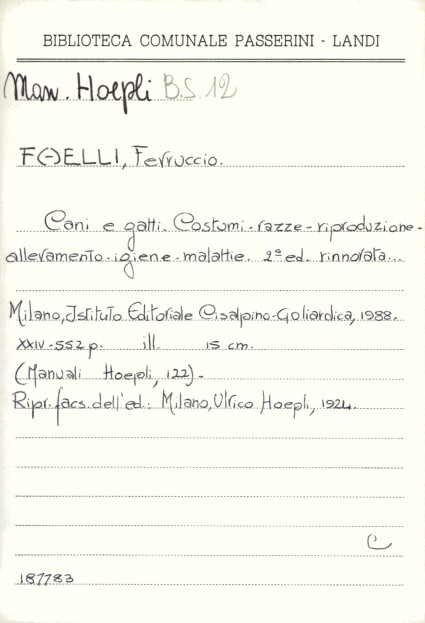 BIBLIOTECA COMUNALE PASSERINI - LANDI
Man. Hoepli B.S. 12
FAELLI, Ferruccio.
Cani e gatti. Costumi - razze - riproduzione -
allevamento - igiene - malattie. 2ª ed. rinnovata...
Milano, Istituto Editoriale Cisalpino-Goliardica, 1988.
XXIV-552 p. ill. 15 cm.
(Manuali Hoepli, 122). -
Ripr. facs. dell'ed.: Milano, Ulrico Hoepli, 1924.
C
187783